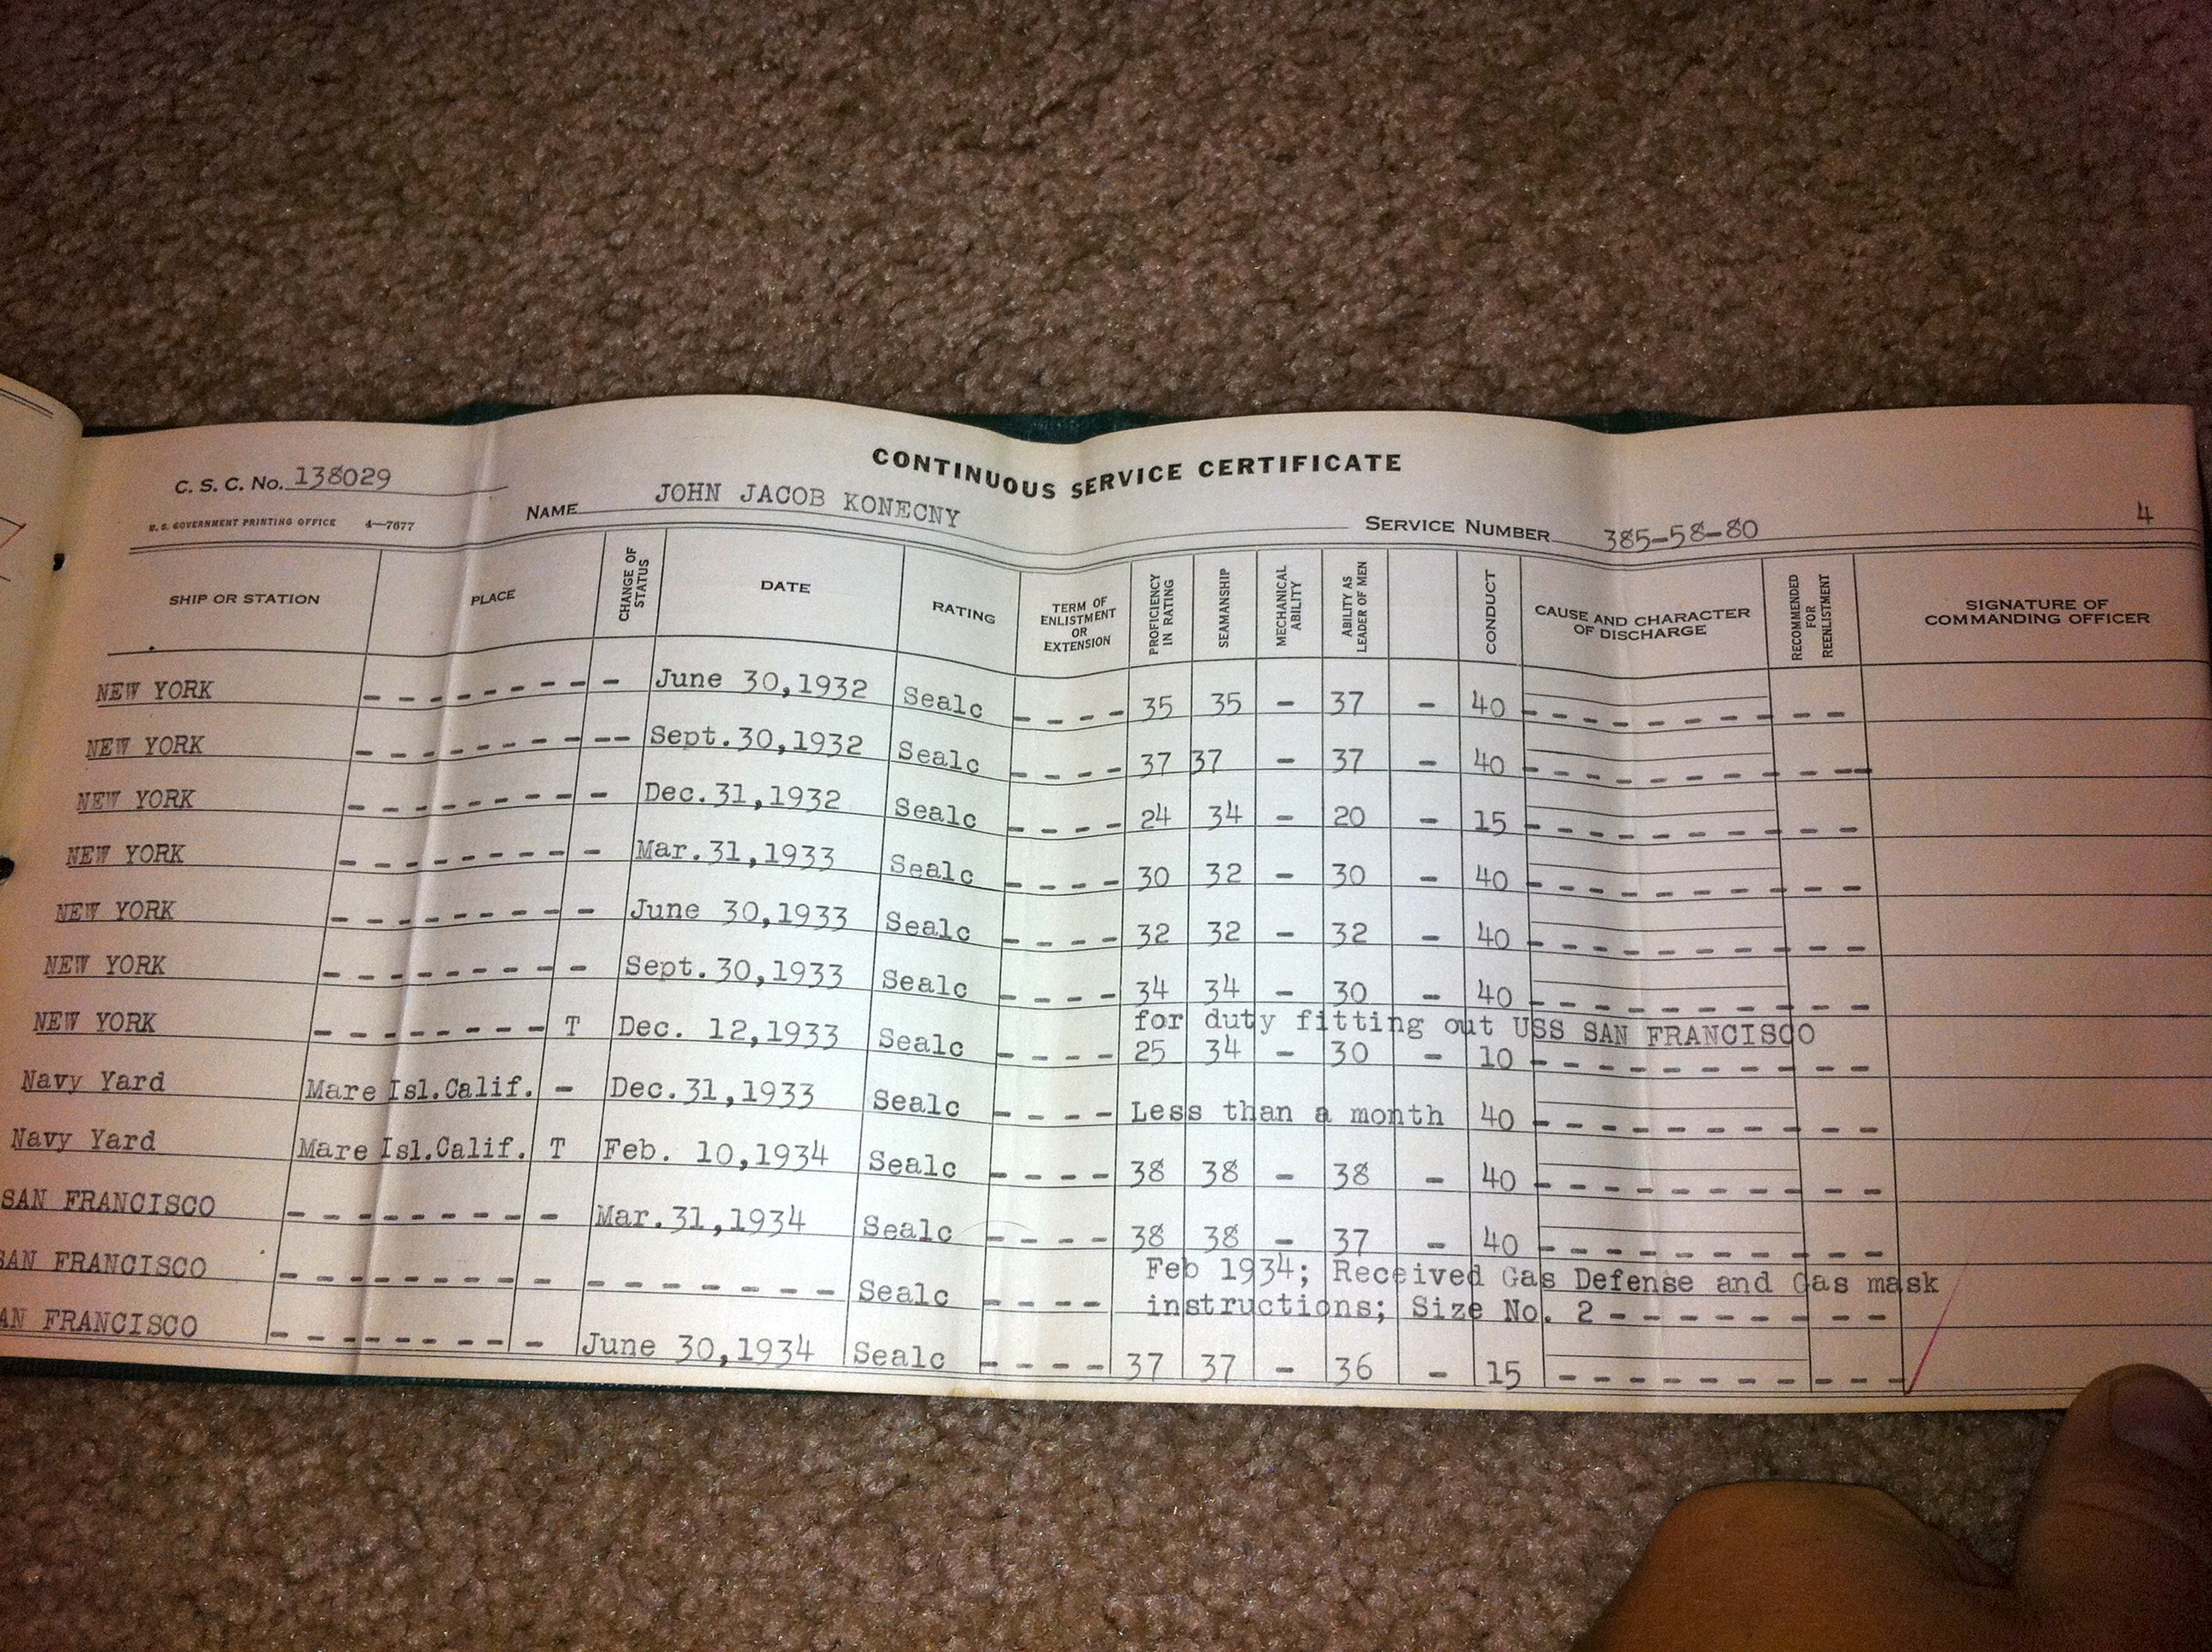 CONTINUOUS SERVICE CERTIFICATE
C. S. C. No. 138029
NAME JOHN JACOB KONECNY
SERVICE NUMBER 385-58-80
4
U. S. GOVERNMENT PRINTING OFFICE 4—7677
SHIP OR STATION PLACE CHANGE OF STATUS DATE RATING TERM OF ENLISTMENT OR EXTENSION PROFICIENCY IN RATING SEAMANSHIP MECHANICAL ABILITY ABILITY AS LEADER OF MEN CONDUCT CAUSE AND CHARACTER OF DISCHARGE RECOMMENDED FOR REENLISTMENT SIGNATURE OF COMMANDING OFFICER
NEW YORK - - - - - - - - June 30,1932 Sea1c - - - - 35 35 - 37 - 40 - - - - - - - - - -
NEW YORK - - - - - - - - - Sept.30,1932 Sea1c - - - - 37 37 - 37 - 40 - - - - - - - - - - -
NEW YORK - - - - - - - - Dec.31,1932 Sea1c - - - - 24 34 - 20 - 15 - - - - - - - - - -
NEW YORK - - - - - - - - Mar.31,1933 Sea1c - - - - 30 32 - 30 - 40 - - - - - - - - - -
NEW YORK - - - - - - - - June 30,1933 Sea1c - - - - 32 32 - 32 - 40 - - - - - - - - - -
NEW YORK - - - - - - - - Sept.30,1933 Sea1c - - - - 34 34 - 30 - 40 - - - - - - - - - -
for duty fitting out USS SAN FRANCISCO
NEW YORK - - - - - - - - T Dec. 12,1933 Sea1c - - - - 25 34 - 30 - 10 - - - - - - - - - -
Navy Yard Mare Isl.Calif. - Dec.31,1933 Sea1c - - - - Less than a month 40 - - - - - - - - - -
Navy Yard Mare Isl.Calif. T Feb. 10,1934 Sea1c - - - - 38 38 - 38 - 40 - - - - - - - - - -
SAN FRANCISCO - - - - - - - - Mar.31,1934 Sea1c - - - - 38 38 - 37 - 40 - - - - - - - - - -
Feb 1934; Received Gas Defense and Gas mask
SAN FRANCISCO - - - - - - - - - - - - - - - Sea1c - - - - instructions; Size No. 2 - - - - - - - - -
AN FRANCISCO - - - - - - - - June 30,1934 Sea1c - - - - 37 37 - 36 - 15 - - - - - - - - - - -